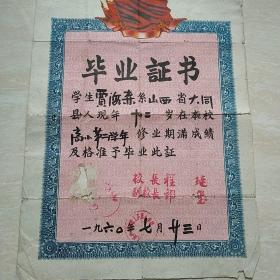 毕业証书
学生贾海泉系山西省大同
县人现年十三岁在本校
高小第一学年修业期满成绩
及格准予毕业此証
校長程
副校長郭
一九六〇年七月廿三日